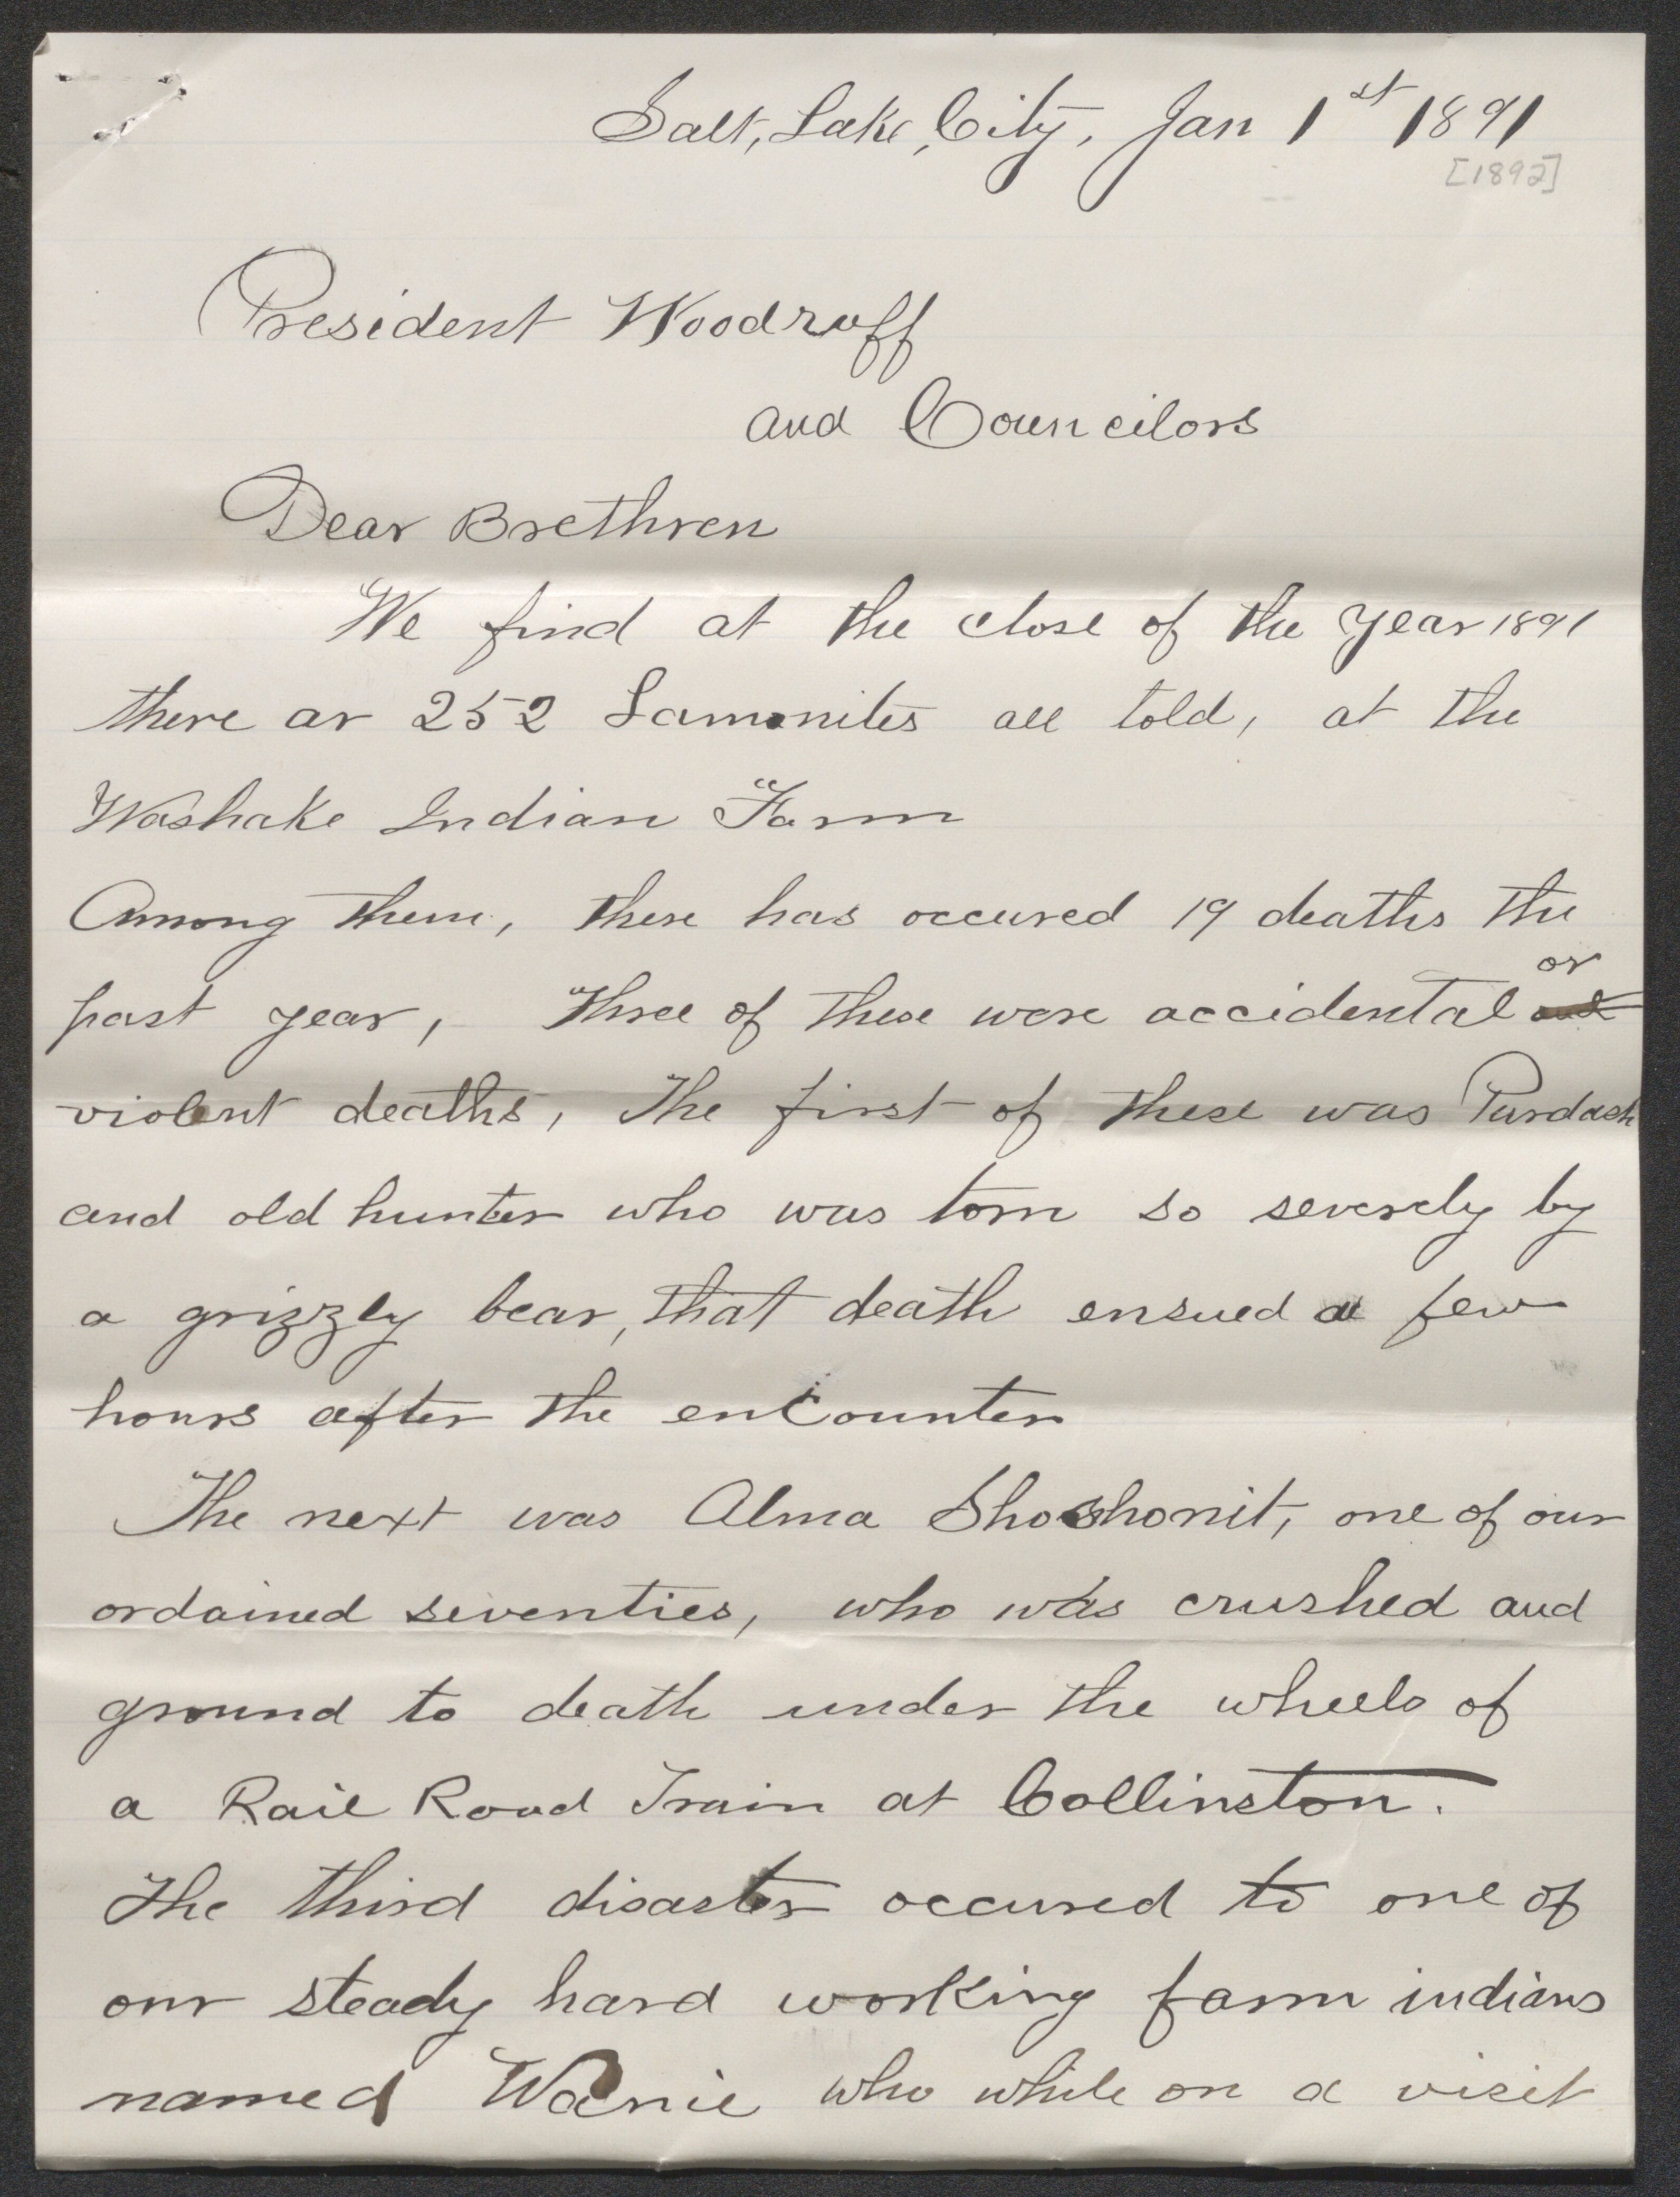 Salt, Lake, City, Jan 1st 1891
[1892]
President Woodruff
and Councilors
Dear Brethren
We find at the close of the year 1891
there ar 252 Lamanites all told, at the
Washake Indian Farm
Among them, there has occured 19 deaths the
or
past year, Three of these were accidental and
violent deaths, The first of these was Purdash
and old hunter who was torn so severely by
a grizzly bear, that death ensued a few
hours after the encounter
The next was Alma Shoshonit, one of our
ordained seventies, who was crushed and
ground to death under the wheels of
a Rail Road Train at Collinston.
The third disaster occured to one of
our steady hard working farm indians
named who while on a visit